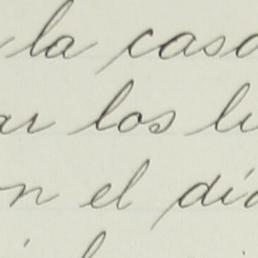 la casa
ar los lu
on el día